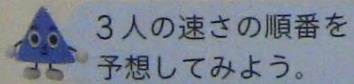 3人の速さの順番を
予想してみよう。